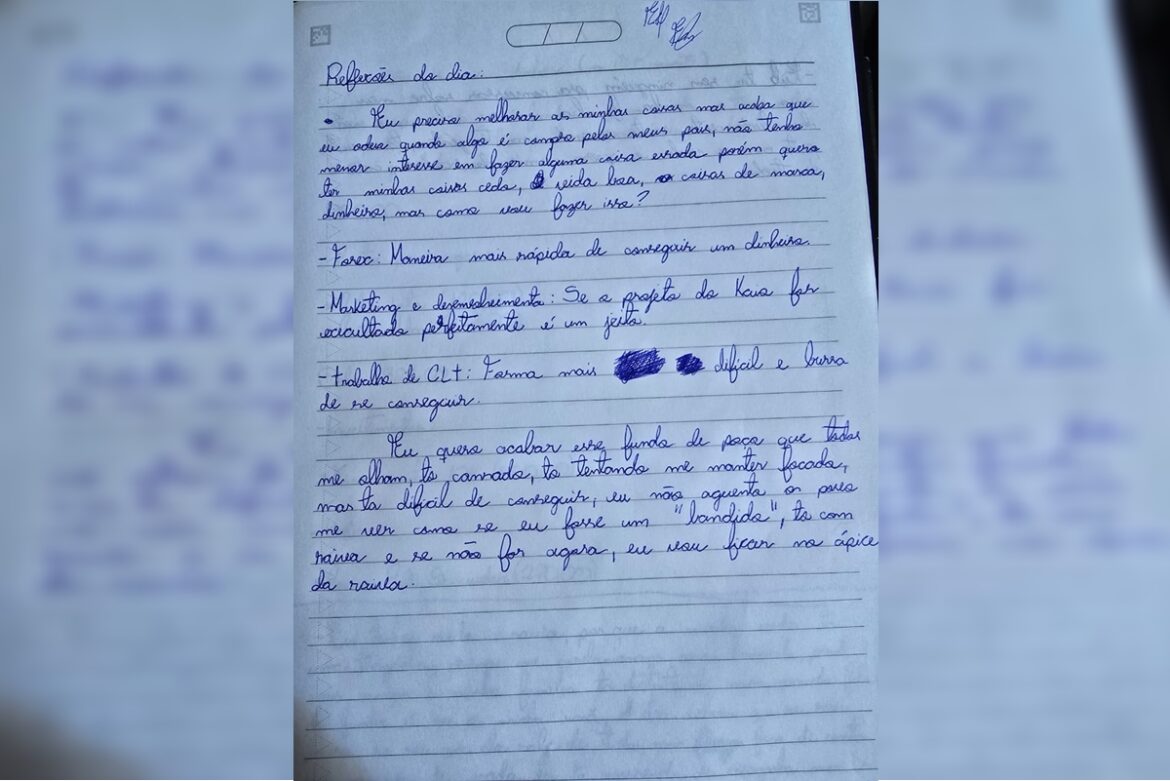 Reflexões do dia:
• Eu preciso melhorar as minhas coisas mas acaba que
eu odeio quando algo é compro pelos meus pais, não tenho
menor interesse em fazer alguma coisa errada porém quero
ter minhas coisas cedo, vida boa, coisas de marca,
dinheiro, mas como vou fazer isso?
- Forex: Maneira mais rápida de conseguir um dinheiro.
- Marketing e desenvolvimento: Se o projeto do Kaua for
executado perfeitamente é um jeito.
- trabalho de CLT: Forma mais difícil e burra
de se conseguir.
Eu quero acabar esse fundo de poço que todos
me olham, to cansado, to tentando me manter focado,
mas ta difícil de conseguir, eu não aguento os povo
me ver como se eu fosse um "bandido", to com
raiva e se não for agora, eu vou ficar no ápice
da raiva.